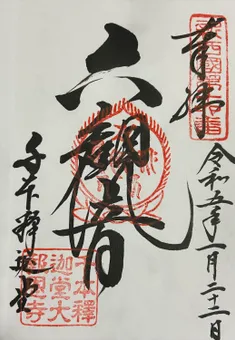 奉拝
令和五年一月二十二日
六観音
千本釋迦堂
千本釋
迦堂大
報恩寺